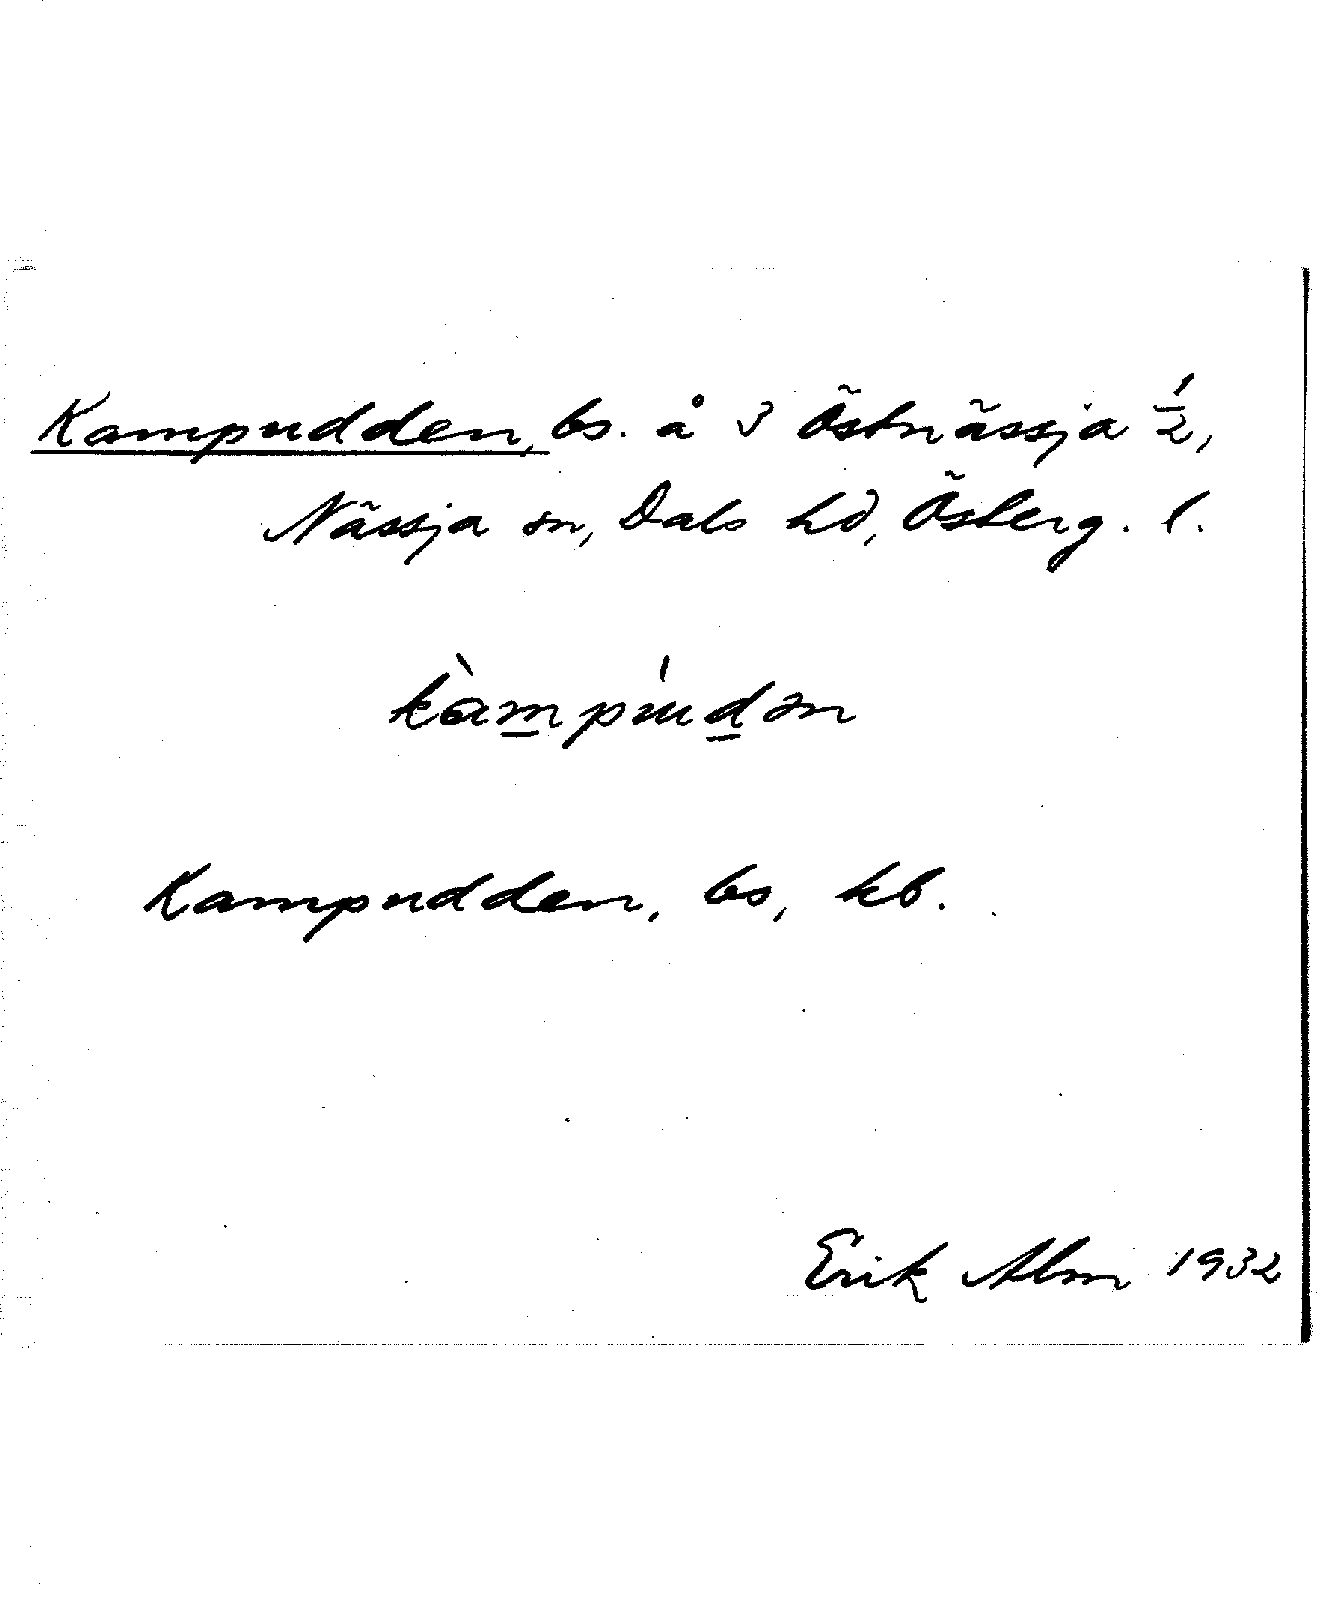 Kampudden, bs. å 3 Östnässja 1/2,
Nässja sn, Dals hd, Österg. l.
kàmpúdən
Kampudden, bs, kb.
Erik Alm 1932